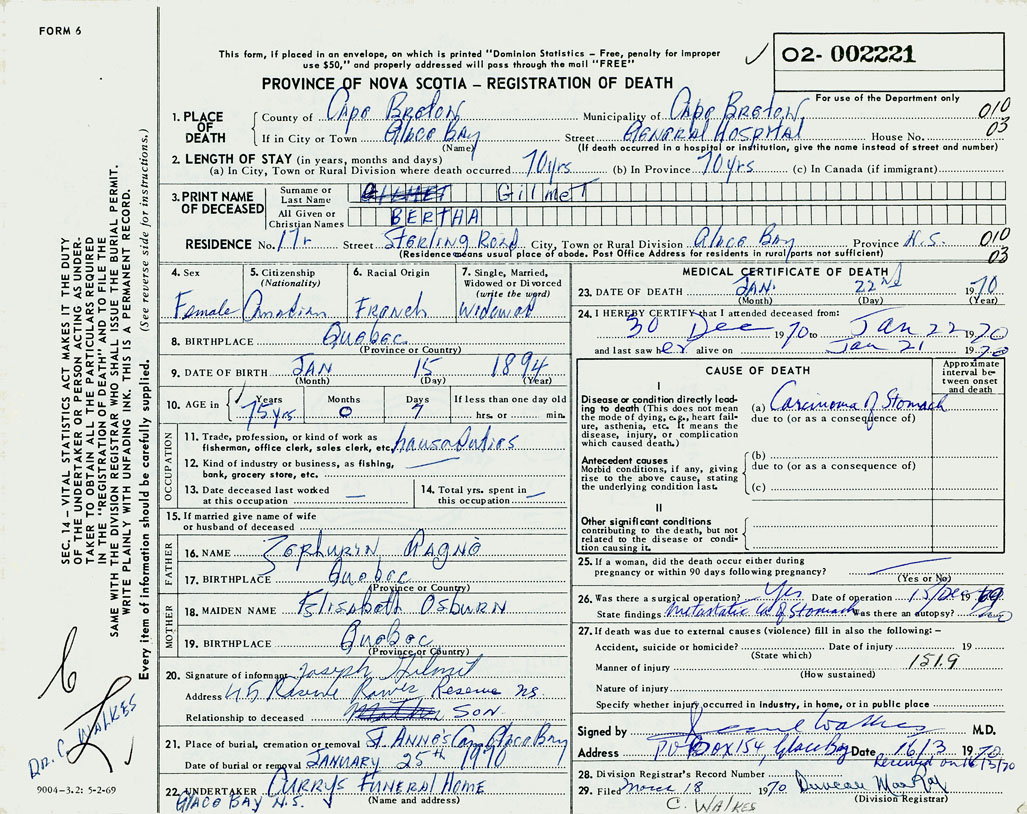 FORM 6
This form, if placed in an envelope, on which is printed "Dominion Statistics – Free, penalty for improper
use $50," and properly addressed will pass through the mail "FREE"
02- 002221
PROVINCE OF NOVA SCOTIA – REGISTRATION OF DEATH
For use of the Department only
1. PLACE OF DEATH
County of Cape Breton Municipality of Cape Breton 010
If in City or Town Glace Bay Street General Hospital House No. 03
(Name) (If death occurred in a hospital or institution, give the name instead of street and number)
2. LENGTH OF STAY (in years, months and days)
(a) In City, Town or Rural Division where death occurred 70 yrs (b) In Province 70 yrs (c) In Canada (if immigrant)
3. PRINT NAME OF DECEASED
Surname or Last Name Gilmet
All Given or Christian Names BERTHA
RESIDENCE No. 17r Street Sterling Road City, Town or Rural Division Glace Bay Province N.S. 010
(Residence means usual place of abode. Post Office Address for residents in rural parts not sufficient) 03
4. Sex Female
5. Citizenship (Nationality) Canadian
6. Racial Origin French
7. Single, Married, Widowed or Divorced (write the word) Widowed
8. BIRTHPLACE Quebec
(Province or Country)
9. DATE OF BIRTH JAN 15 1894
(Month) (Day) (Year)
10. AGE in Years 75 yrs Months 0 Days 7 If less than one day old hrs. or min.
OCCUPATION
11. Trade, profession, or kind of work as
fisherman, office clerk, sales clerk, etc. house duties
12. Kind of industry or business, as fishing,
bank, grocery store, etc. —
13. Date deceased last worked
at this occupation —
14. Total yrs. spent in
this occupation —
15. If married give name of wife
or husband of deceased
FATHER
16. NAME Zephurin
17. BIRTHPLACE Quebec
(Province or Country)
MOTHER
18. MAIDEN NAME Elisabeth Osburn
19. BIRTHPLACE Quebec
(Province or Country)
20. Signature of informant Joseph Gilmet
Address 45 Reserve Rows Reserve NS
Relationship to deceased Mother SON
21. Place of burial, cremation or removal St. Anne's Cem Glace Bay
Date of burial or removal JANUARY 25th 1970
22. UNDERTAKER CURRYS FUNERAL HOME
GLACE BAY N.S. (Name and address)
MEDICAL CERTIFICATE OF DEATH
23. DATE OF DEATH JAN. 22nd 1970
(Month) (Day) (Year)
24. I HEREBY CERTIFY that I attended deceased from:
30 Dec 1970 to Jan 22 1970
and last saw her alive on Jan 21 1970
CAUSE OF DEATH
Approximate interval between onset and death
I
Disease or condition directly leading to death (This does not mean the mode of dying, e.g., heart failure, asthenia, etc. It means the disease, injury, or complication which caused death.)
(a) Carcinoma of Stomach
due to (or as a consequence of)
Antecedent causes
Morbid conditions, if any, giving rise to the above cause, stating the underlying condition last.
(b)
due to (or as a consequence of)
(c)
II
Other significant conditions
contributing to the death, but not related to the disease or condition causing it.
25. If a woman, did the death occur either during
pregnancy or within 90 days following pregnancy? —
(Yes or No)
26. Was there a surgical operation? Yes Date of operation 15/Dec 1969
State findings Metastatic Ca of Stomach Was there an autopsy? no
27. If death was due to external causes (violence) fill in also the following: –
Accident, suicide or homicide? Date of injury 19
(State which)
Manner of injury 151.9
(How sustained)
Nature of injury
Specify whether injury occurred in industry, in home, or in public place
Signed by M.D.
Address PO BOX 154, Glace Bay Date 16/3 1970
Received on 16/3/70
28. Division Registrar's Record Number
29. Filed March 18 1970 Duncan MacKay
C. WALKES (Division Registrar)
SEC. 14 – VITAL STATISTICS ACT MAKES IT THE DUTY
OF THE UNDERTAKER OR PERSON ACTING AS UNDER-
TAKER TO OBTAIN ALL THE PARTICULARS REQUIRED
IN THE "REGISTRATION OF DEATH" AND TO FILE THE
SAME WITH THE DIVISION REGISTRAR WHO SHALL ISSUE THE BURIAL PERMIT.
WRITE PLAINLY WITH UNFADING INK. THIS IS A PERMANENT RECORD.
Every item of information should be carefully supplied. (See reverse side for instructions.)
DR. C. WALKES
9004–3.2: 5-2-69